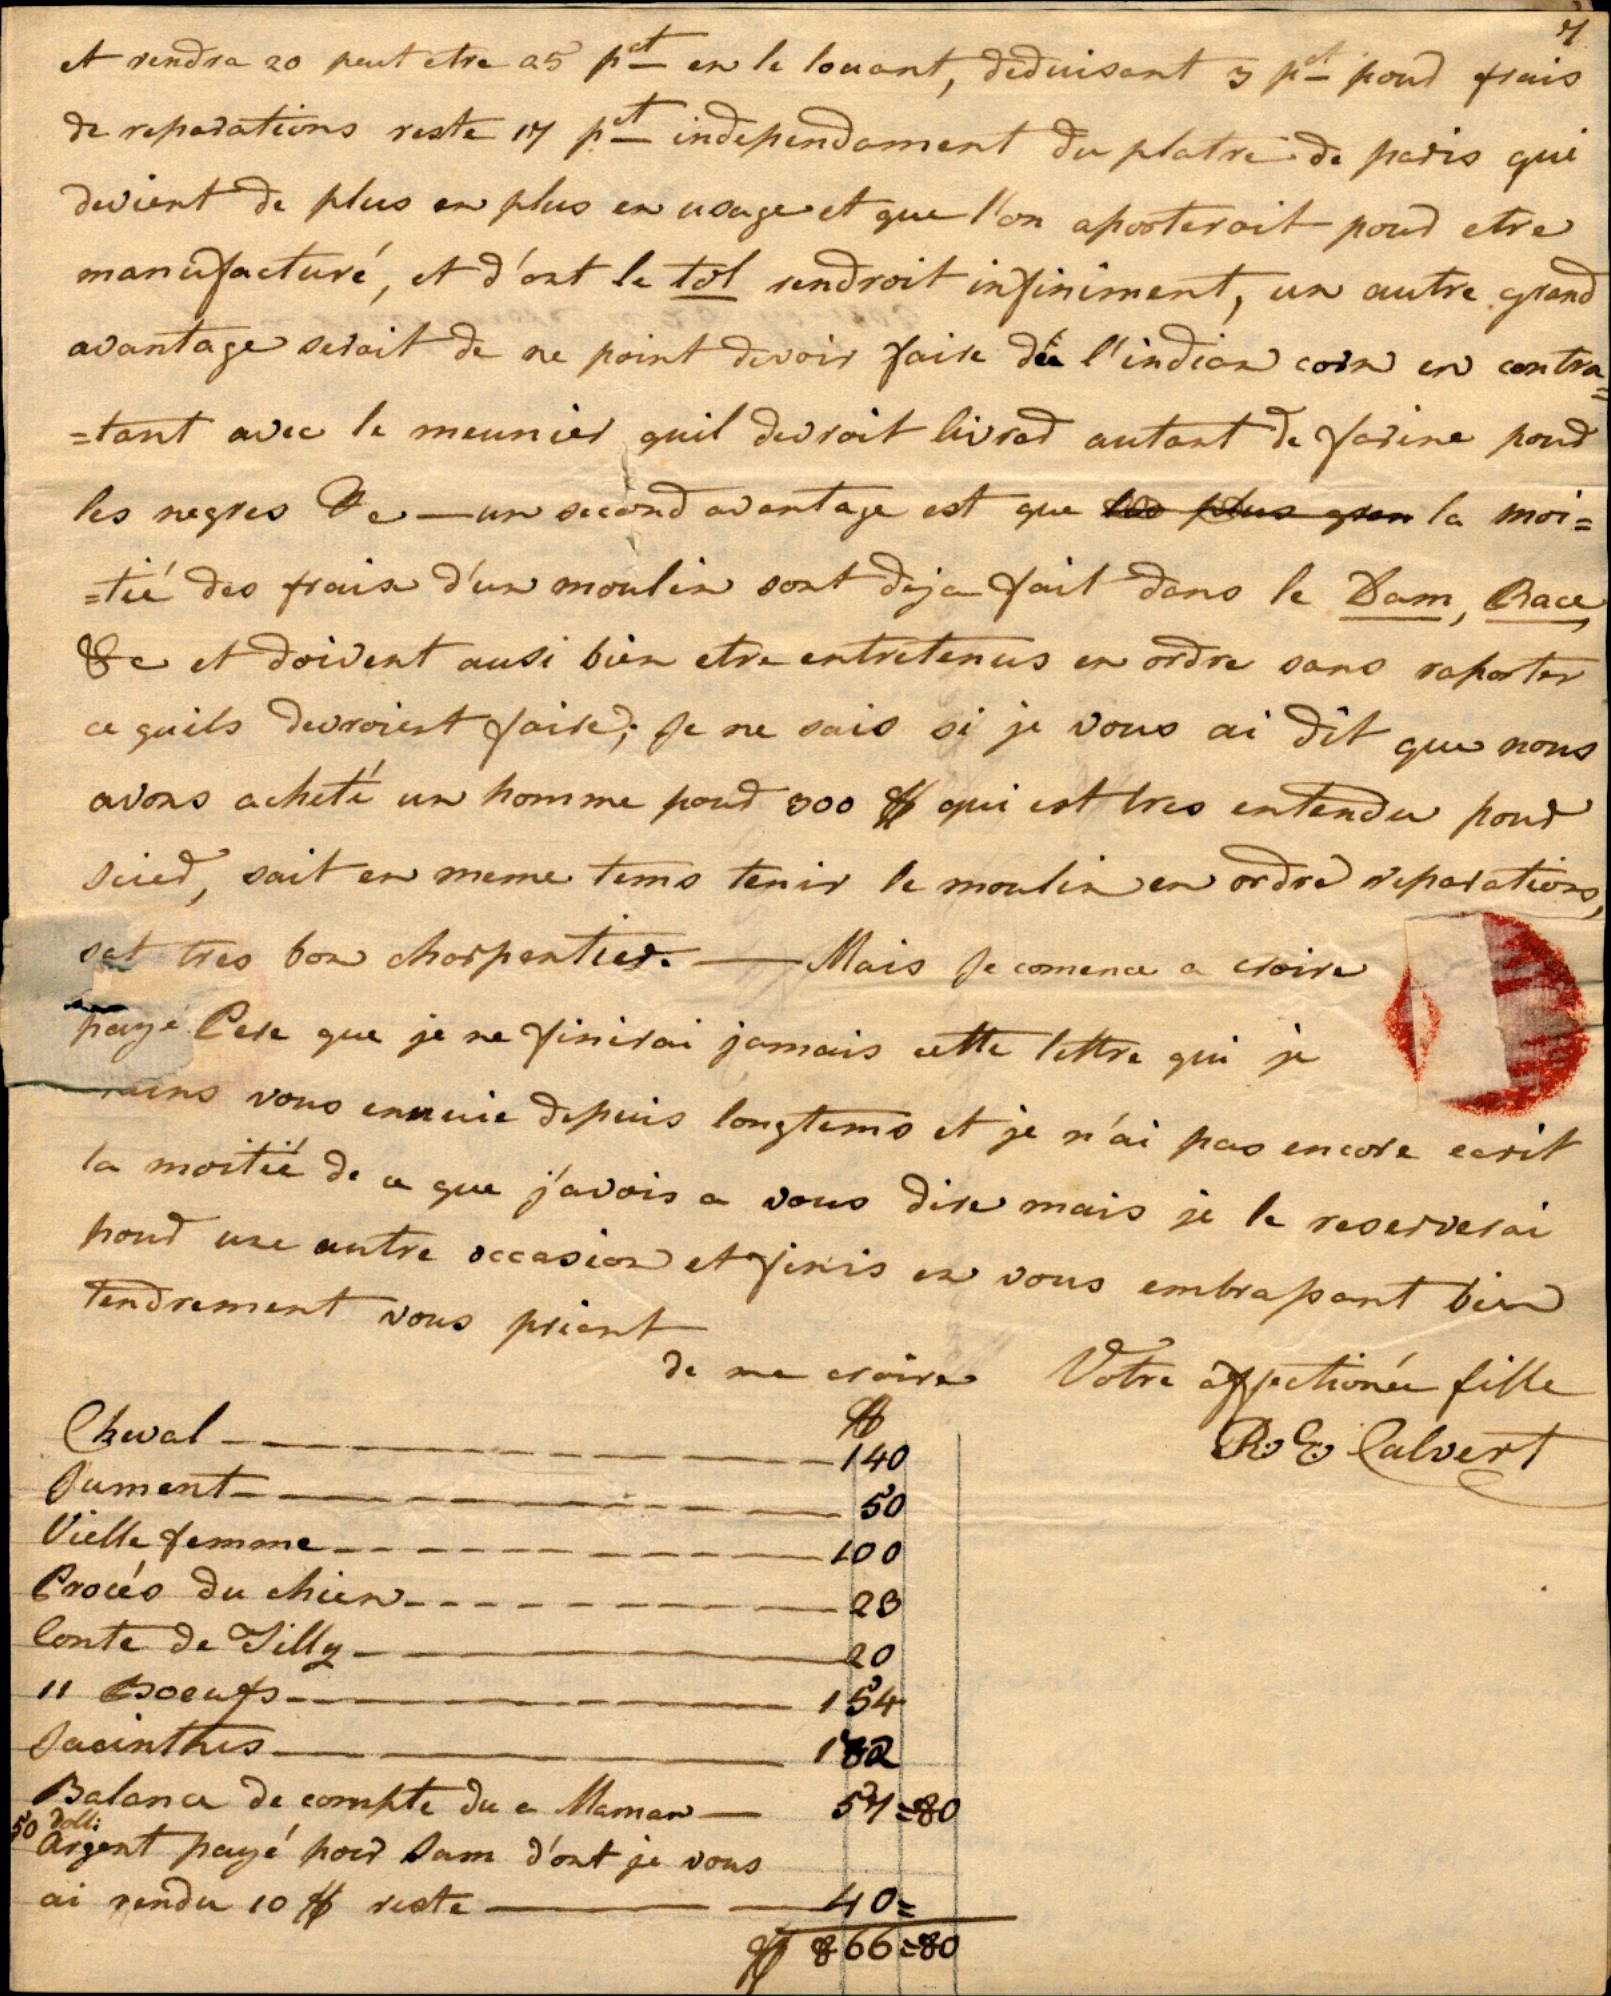 7
et rendra 20 peut etre 25 pct en le louant, deduisant 3 pct pour frais
de reparations reste 17 pct independament du platre de paris qui
devient de plus en plus en usage et que l'on aporteroit pour etre
manufacturé, et d'ont le tol rendroit infiniment, un autre grand
avantage seroit de ne point devoir faire de l'indian corn en contra=
=tant avec le meunier quil devroit livrer autant de farine pour
les negres &c — un second avantage est que les plus gran la moi=
=tié des frais d'un moulin sont deja fait dans le Dam, Race,
&c et doivent ausi bien etre entretenus en ordre sans raporter
ce quils devroient faire; Je ne sais si je vous ai dit que nous
avons acheté un homme pour 300 $ qui est tres entendu pour
scier, sait en meme tems tenir le moulin en ordre reparations,
est tres bon charpentier. — Mais Je comence a croire
Pere que je ne finirai jamais cette lettre qui je
vous ennuie depuis longtems et je n'ai pas encore ecrit
la moitié de ce que j'avois a vous dire mais je le reserverai
pour une autre occasion et finis en vous embrassant bien
tendrement vous priant
de me croire Votre affectionée fille
R. E. Calvert
$
Cheval — 140
Jument — 50
Vielle femme — 100
Procés du chien — 23
Conte de Tilly — 20
11 Boeufs — 154
Jacinthes — 182
Balance de compte du a Maman — 57=80
50 doll:
Argent payé pour Sam d'ont je vous
ai rendu 10 $ reste — 40=
$ 866=80